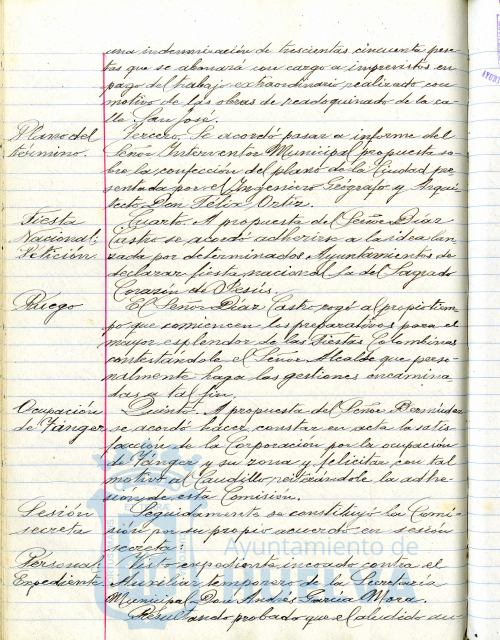 una indemnización de trescientas cincuenta pese-
tas que se abonará con cargo a imprevistos en
pago del trabajo extraordinario realizado con
motivo de las obras de readoquinado de la ca-
lle San José.
Plano del término.
Tercero. Se acordó pasar a informe del
Señor Interventor Municipal propuesta so-
bre la confección del plano de la Ciudad pre-
sentada por el Ingeniero Geógrafo y Arqui-
tecto Don Félix Ortiz.
Fiesta Nacional; Petición.
Cuarto. A propuesta del Señor Díaz
Castro se acordó adherirse a la idea lan-
zada por determinados Ayuntamientos de
declarar fiesta nacional la del Sagrado
Corazón de Jesús.
Ruego
El Señor Díaz Castro rogó al propio tiem-
po que comiencen los preparativos para el
mayor esplendor de las fiestas Colombinas
contestándole el Señor Alcalde que perso-
nalmente haga las gestiones encamina-
das a tal fin.
Ocupación de Tánger
Quinto. A propuesta del Señor Bermúdez
se acordó hacer constar en acta la satis-
facción de la Corporación por la ocupación
de Tánger y su zona y felicitar con tal
motivo al Caudillo reiterándole la adhe-
sión de esta Comisión.
Sesión secreta
Seguidamente se constituyó la Comi-
sión por su propio acuerdo en sesión
secreta:
Personal Expediente
Visto expediente incoado contra el
Auxiliar temporero de la Secretaría
Municipal Don Andrés García Mora.
Resultando probado que el aludido au-
Ayuntamiento de